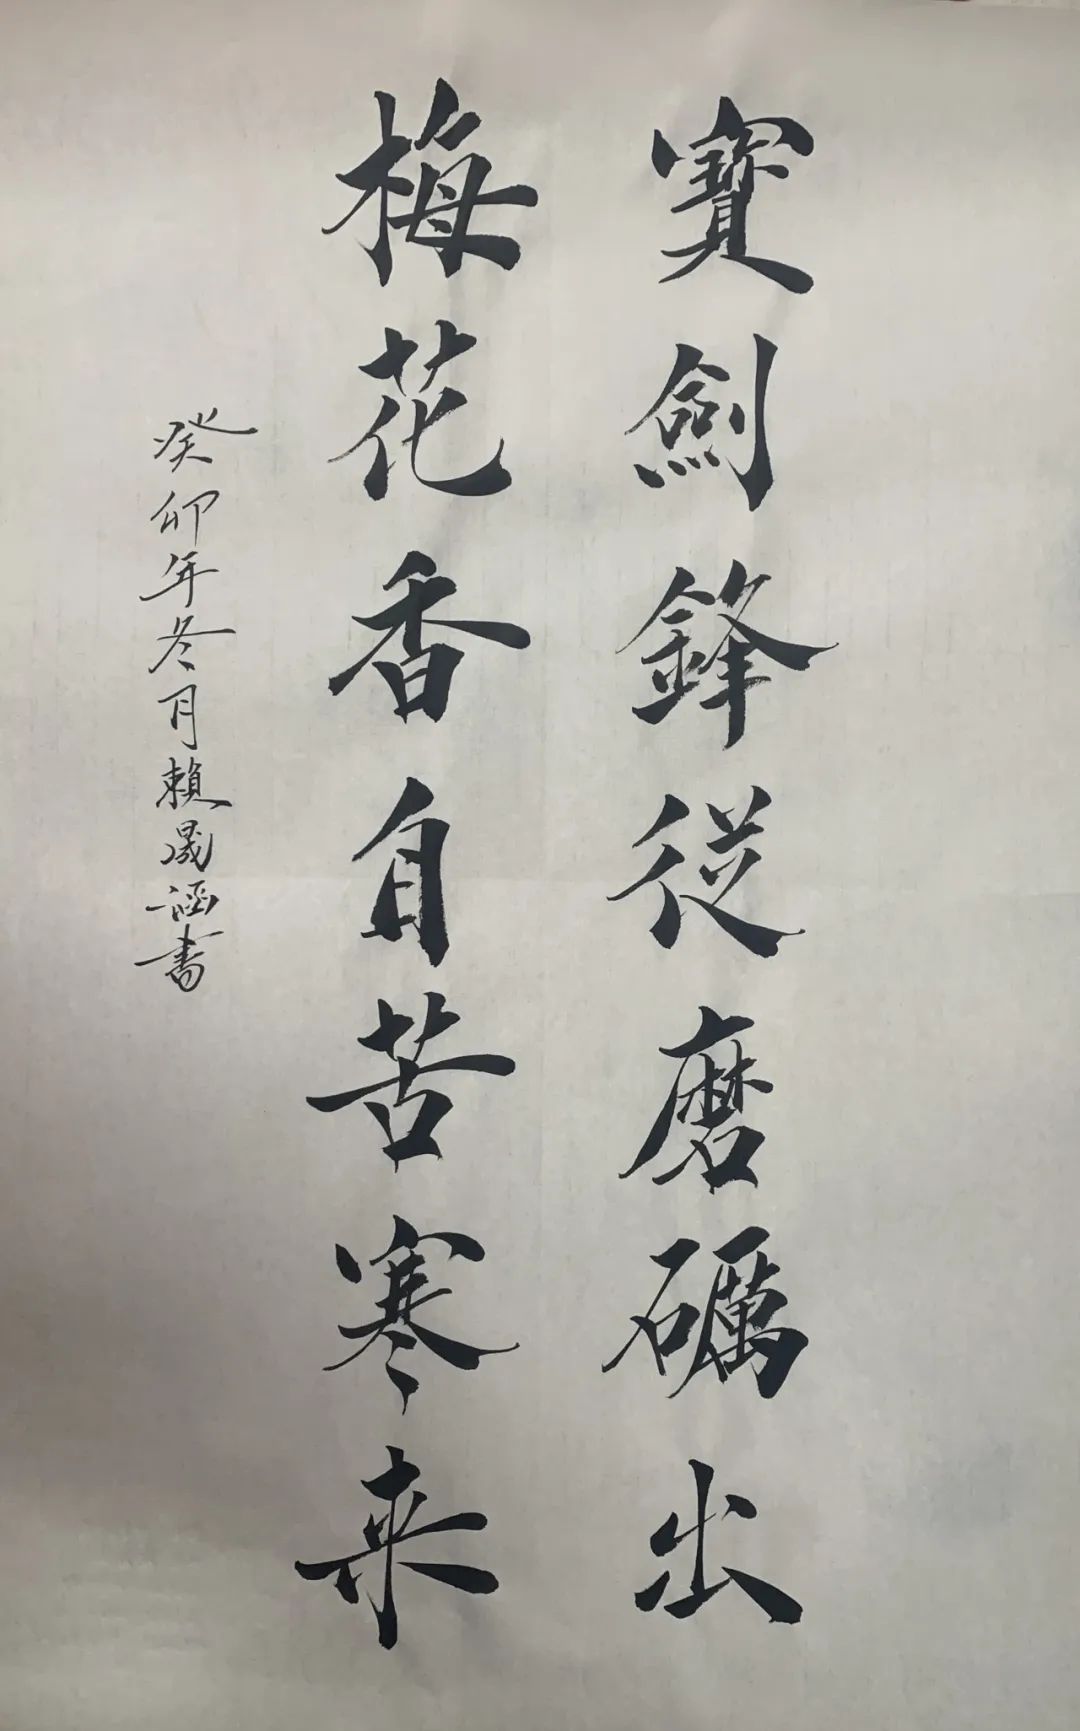 寶劍鋒從磨礪出
梅花香自苦寒来
癸卯年冬月賴晟涵書